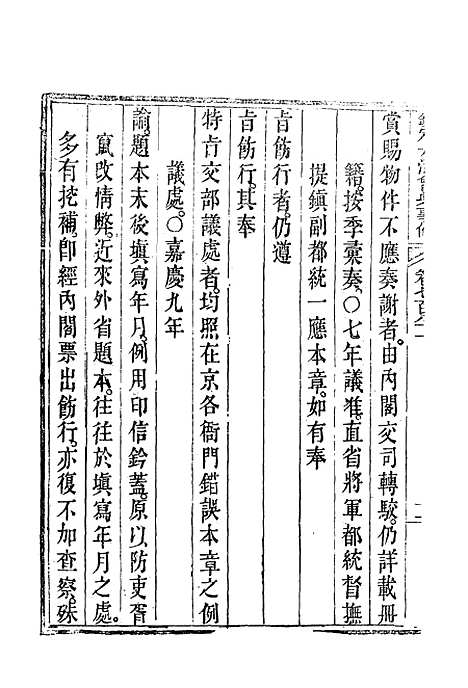 賞賜物件不應奏謝者。由內閣交司轉駮。仍詳載冊
籍。按季彙奏。〇七年議准。直省將軍都統督撫
提鎮副都統一應本章。如有奉
旨飭行者。仍遵
旨飭行。其奉
特旨交部議處者。均照在京各衙門錯誤本章之例
議處。〇嘉慶九年
諭。題本末後塡寫年月。例用印信鈐蓋。原以防吏胥
竄改情弊。近來外省題本。往往於塡寫年月之處。
多有挖補。卽經內閣票出飭行。亦復不加查察。殊